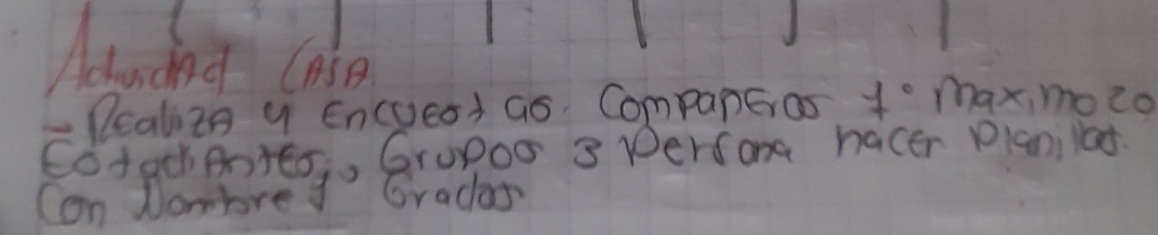 Actividad CASA
- Realiza y Encuestas. Compañeros 1° Maximo 20
Estudiantes, Grupos 3 Persona hacer Planillas.
Con Nombre y Grados